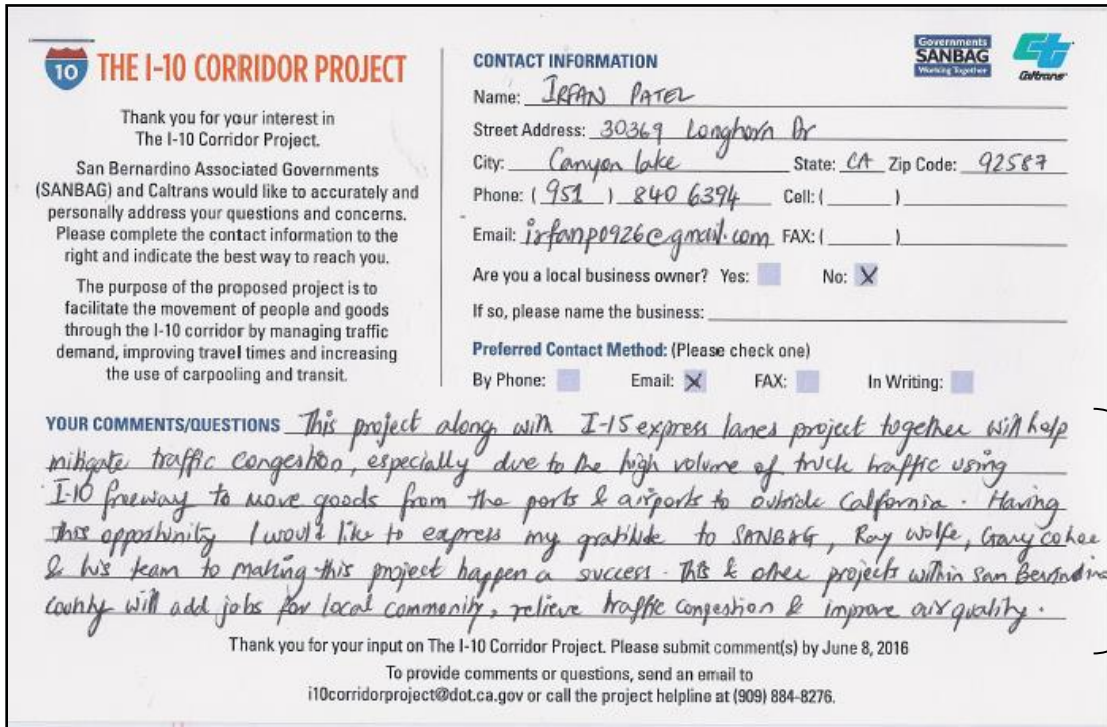 10 THE I-10 CORRIDOR PROJECT
Thank you for your interest in
The I-10 Corridor Project.
San Bernardino Associated Governments
(SANBAG) and Caltrans would like to accurately and
personally address your questions and concerns.
Please complete the contact information to the
right and indicate the best way to reach you.
The purpose of the proposed project is to
facilitate the movement of people and goods
through the I-10 corridor by managing traffic
demand, improving travel times and increasing
the use of carpooling and transit.
Governments
SANBAG
Working Together
Caltrans
CONTACT INFORMATION
Name: IRFAN PATEL
Street Address: 30369 Longhorn Dr
City: Canyon lake State: CA Zip Code: 92587
Phone: (951) 840 6394 Cell: ( )
Email: irfanp0926@gmail.com FAX: ( )
Are you a local business owner? Yes: No: X
If so, please name the business:
Preferred Contact Method: (Please check one)
By Phone: Email: X FAX: In Writing:
YOUR COMMENTS/QUESTIONS This project along with I-15 express lanes project together will help
mitigate traffic congestion, especially due to the high volume of truck traffic using
I-10 freeway to move goods from the ports & airports to outside California. Having
this opportunity I would like to express my gratitude to SANBAG, Ray Wolfe, Gary Cohoe
& his team to making this project happen a success. This & other projects within San Bernardino
county will add jobs for local community, relieve traffic congestion & improve air quality.
Thank you for your input on The I-10 Corridor Project. Please submit comment(s) by June 8, 2016
To provide comments or questions, send an email to
i10corridorproject@dot.ca.gov or call the project helpline at (909) 884-8276.